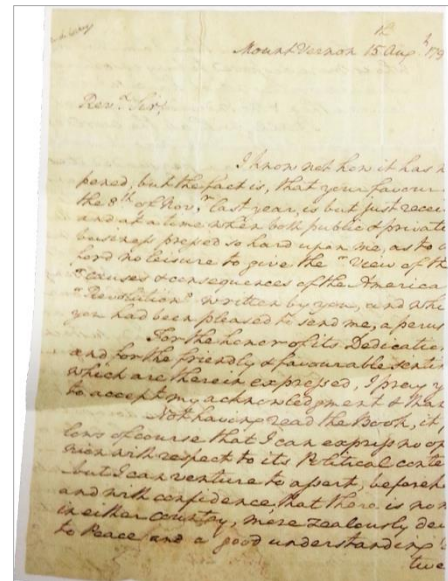 Mount Vernon 15th Augt 179
Revd Sir,
I know not how it has h
pened, but the fact is, that your favour
the 8th of Novr last year, is but just recei
and at a time when both public & private
business pressed so hard upon me, as to a
ford no leisure to give the "View of th
"causes & consequences of the America
"Revolution" written by you, and whi
you had been pleased to send me, a perus
For the honor of its Dedicatio
and for the friendly & favourable senti
which are therein expressed, I pray y
to accept my acknowledgment & than
Not having read the Book, it
lows of course that I can express no op
nion with respect to its Political conte
but I can venture to assert, beforeh
and with confidence, that there is no m
in either country, more zealously dev
to Peace and a good understanding
twe